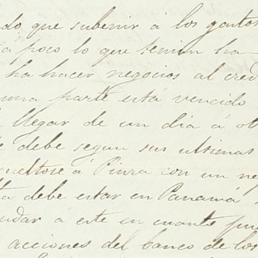 do que subenir á los gastos
á poco lo que segun ha
ha hacer negocios al cred
una parte está vencido
llegar de un dia á ot
debe segun sus ultimas
á Piura con un ne
debe estar en Panamá
dar a este en cuanto pue
acciones del banco de los